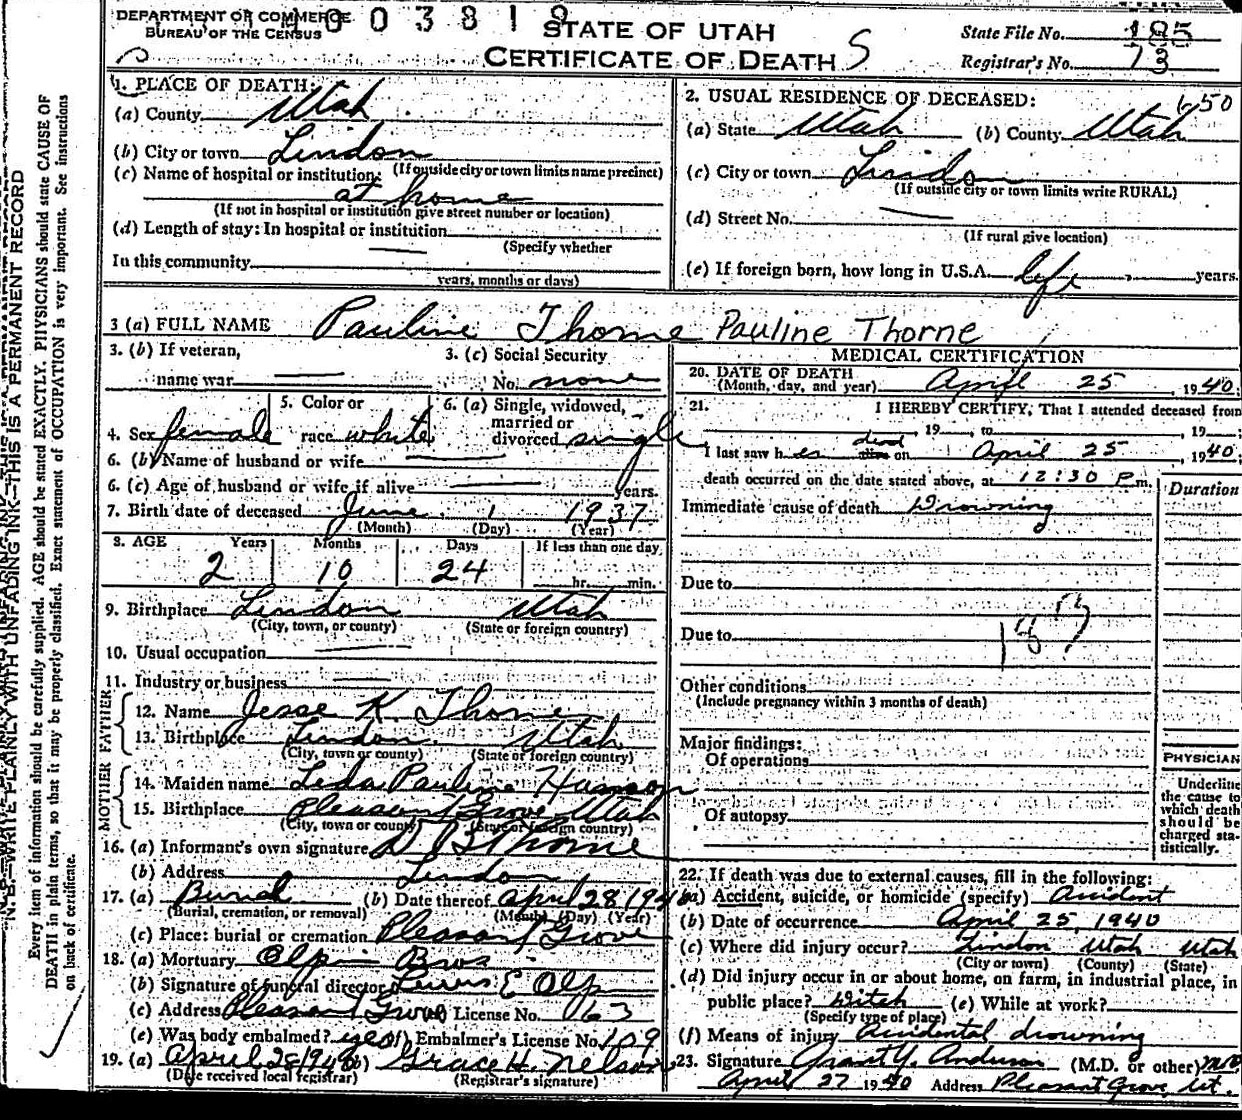 DEPARTMENT OF COMMERCE
BUREAU OF THE CENSUS
0 0 3 8 1 9
STATE OF UTAH
CERTIFICATE OF DEATH S
State File No. 185
Registrar's No. 73
1. PLACE OF DEATH:
(a) County Utah
(b) City or town Lindon
(If outside city or town limits name precinct)
(c) Name of hospital or institution:
at home
(If not in hospital or institution give street number or location)
(d) Length of stay: In hospital or institution —
(Specify whether
In this community
years, months or days)
2. USUAL RESIDENCE OF DECEASED: 650
(a) State Utah (b) County Utah
(c) City or town Lindon
(If outside city or town limits write RURAL)
(d) Street No. —
(If rural give location)
(e) If foreign born, how long in U.S.A. life years.
3 (a) FULL NAME Pauline Thorne Pauline Thorne
3. (b) If veteran,
name war —
3. (c) Social Security
No. none
4. Sex female
5. Color or
race white
6. (a) Single, widowed,
married or
divorced single
6. (b) Name of husband or wife —
6. (c) Age of husband or wife if alive — years.
7. Birth date of deceased June 1 1937
(Month) (Day) (Year)
8. AGE Years Months Days If less than one day
2 10 24 hr. min.
9. Birthplace Lindon Utah
(City, town, or county) (State or foreign country)
10. Usual occupation —
11. Industry or business —
FATHER
12. Name Jesse K. Thorne
13. Birthplace Lindon Utah
(City, town or county) (State or foreign country)
MOTHER
14. Maiden name Leda Pauline Hanson
15. Birthplace Pleasant Grove Utah
(City, town or county) (State or foreign country)
16. (a) Informant's own signature Thorne
(b) Address Lindon
17. (a) Burial (b) Date thereof April 28 1940
(Burial, cremation, or removal) (Month) (Day) (Year)
(c) Place: burial or cremation Pleasant Grove
18. (a) Mortuary Olpin Bros
(b) Signature of funeral director Lewis E Olpin
(c) Address Pleasant Grove License No. 163
(e) Was body embalmed? yes (f) Embalmer's License No. 109
19. (a) April 28 1940 (b) Grace H. Nelson
(Date received local registrar) (Registrar's signature)
MEDICAL CERTIFICATION
20. DATE OF DEATH
(Month, day, and year) April 25, 1940
21. I HEREBY CERTIFY, That I attended deceased from
, 19 , to , 19 ;
I last saw her dead alive on April 25, 1940;
death occurred on the date stated above, at 12:30 P m.
Duration
Immediate cause of death Drowning
Due to
Due to
Other conditions
(Include pregnancy within 3 months of death)
Major findings:
Of operations
Of autopsy
PHYSICIAN
Underline
the cause to
which death
should be
charged sta-
tistically.
22. If death was due to external causes, fill in the following:
(a) Accident, suicide, or homicide (specify) Accident
(b) Date of occurrence April 25, 1940
(c) Where did injury occur? Lindon Utah Utah
(City or town) (County) (State)
(d) Did injury occur in or about home, on farm, in industrial place, in
public place? Ditch (e) While at work?
(Specify type of place)
(f) Means of injury Accidental drowning
23. Signature Grant Y. Anderson (M.D. or other) M.D.
April 27 1940 Address Pleasant Grove, Ut.
N.B.—WRITE PLAINLY WITH UNFADING INK—THIS IS A PERMANENT RECORD
Every item of information should be carefully supplied. AGE should be stated EXACTLY. PHYSICIANS should state CAUSE OF
DEATH in plain terms, so that it may be properly classified. Exact statement of OCCUPATION is very important. See instructions
on back of certificate.